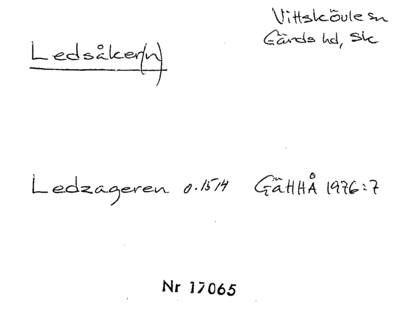 Vittskövle sn
Gärds hd, Sk
Ledsåker(n)
Ledzageren o. 1514 GäHHÅ 1976:7
Nr 17065